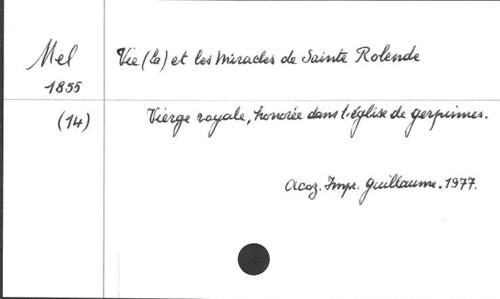 Mel Vie (La) et les Miracles de Sainte Rolende
1855
(14) Vierge royale, honorée dans l'église de gerpinnes.
Acoz. Impr. Guillaume. 1977.